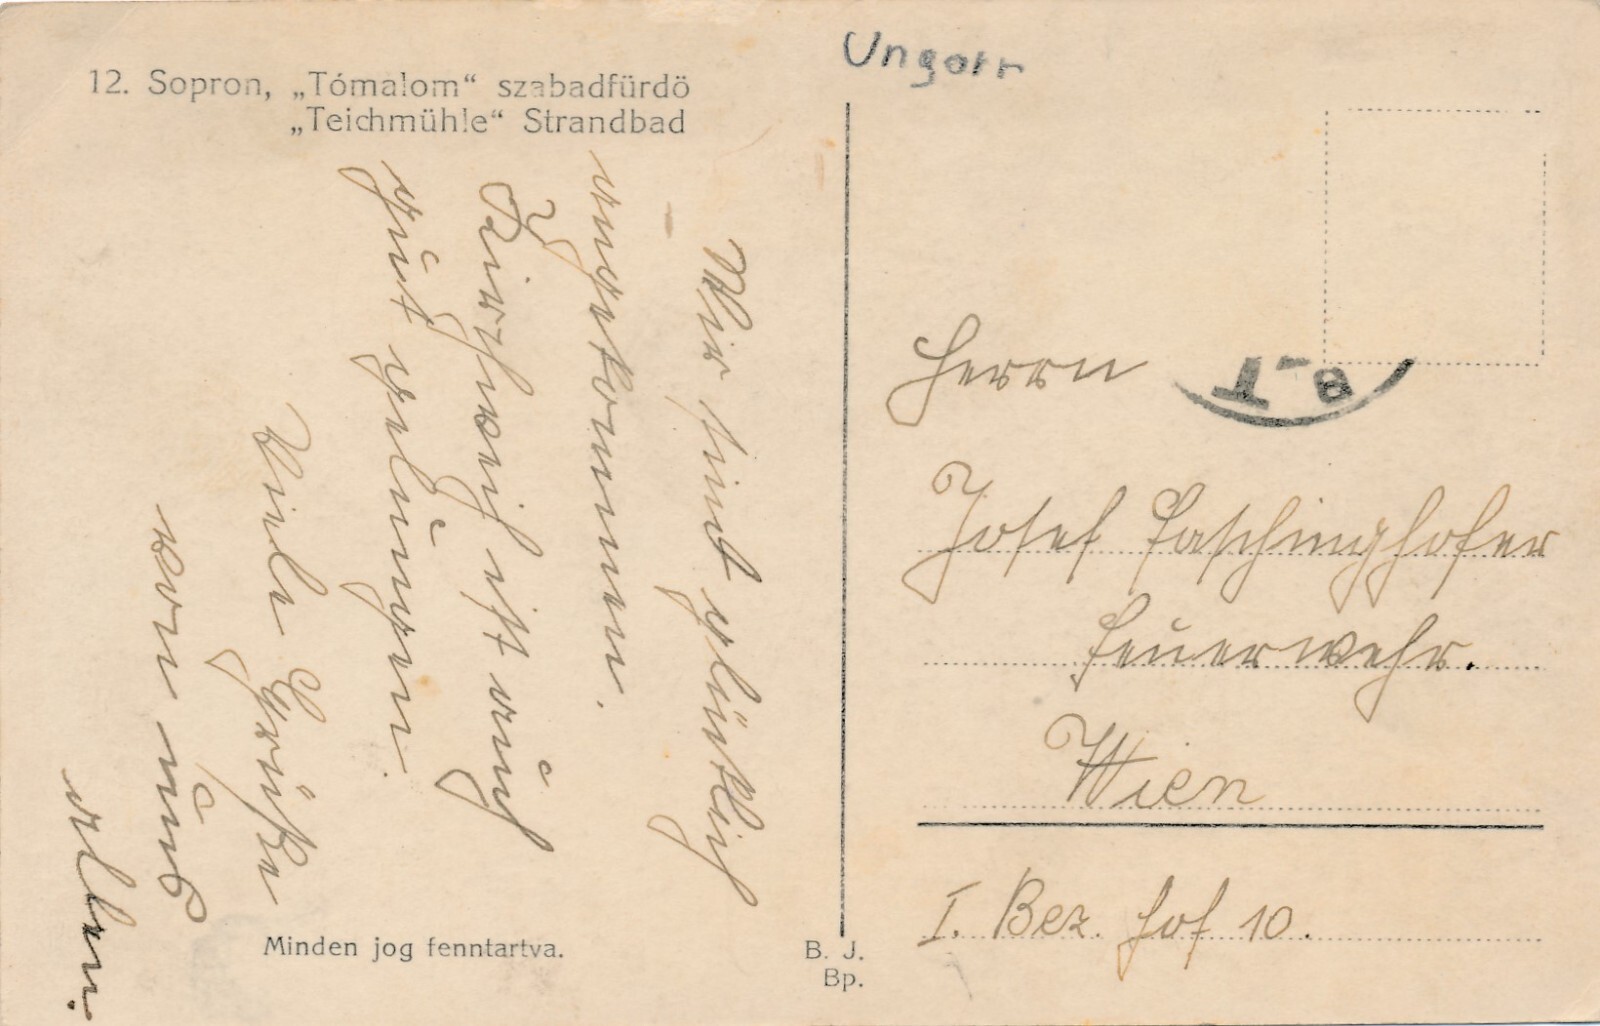 Ungarn
12. Sopron, „Tómalom“ szabadfürdö
„Teichmühle“ Strandbad
Wir sind glücklich
angekommen.
ist auch
gut gelungen.
Viele Grüße
von uns
allen.
Herrn
Josef Faschinghofer
Feuerwehr.
Wien
I. Bez. Hof 10.
1-8
Minden jog fenntartva.
B. J.
Bp.